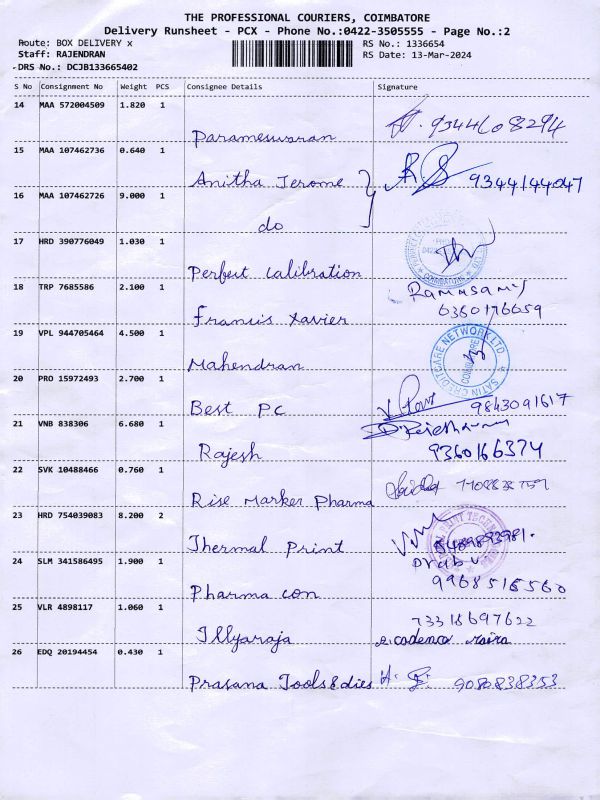 THE PROFESSIONAL COURIERS, COIMBATORE
Delivery Runsheet - PCX - Phone No.:0422-3505555 - Page No.:2
Route: BOX DELIVERY x
RS No.: 1336654
Staff: RAJENDRAN
RS Date: 13-Mar-2024
DRS No.: DCJB133665402
S No Consignment No Weight PCS Consignee Details Signature
14 MAA 572004509 1.820 1
Parameswaran 9344608294
15 MAA 107462736 0.640 1
Anitha Jerome 9344144047
16 MAA 107462726 9.000 1
do
17 HRD 390776049 1.030 1
Perfect Calibration
COIMBATORE
18 TRP 7685586 2.100 1
Ramasamy
Francis Xavier 6360176659
19 VPL 944705464 4.500 1
SATIN CREDITCARE NETWORK LTD
Mahendran
20 PRO 15972493 2.700 1
Best PC 9843091617
21 VNB 838306 6.680 1
Rajesh 9360166374
22 SVK 10488466 0.760 1
Rise Marker Pharma
23 HRD 754039083 8.200 2
Thermal Print 8489893981.
24 SLM 341586495 1.900 1
Prabu
Pharma con 9968516560
25 VLR 4898117 1.060 1
73316697622
Illyaraja
26 EDQ 20194454 0.430 1
Prasana Tools & dies 9080838353